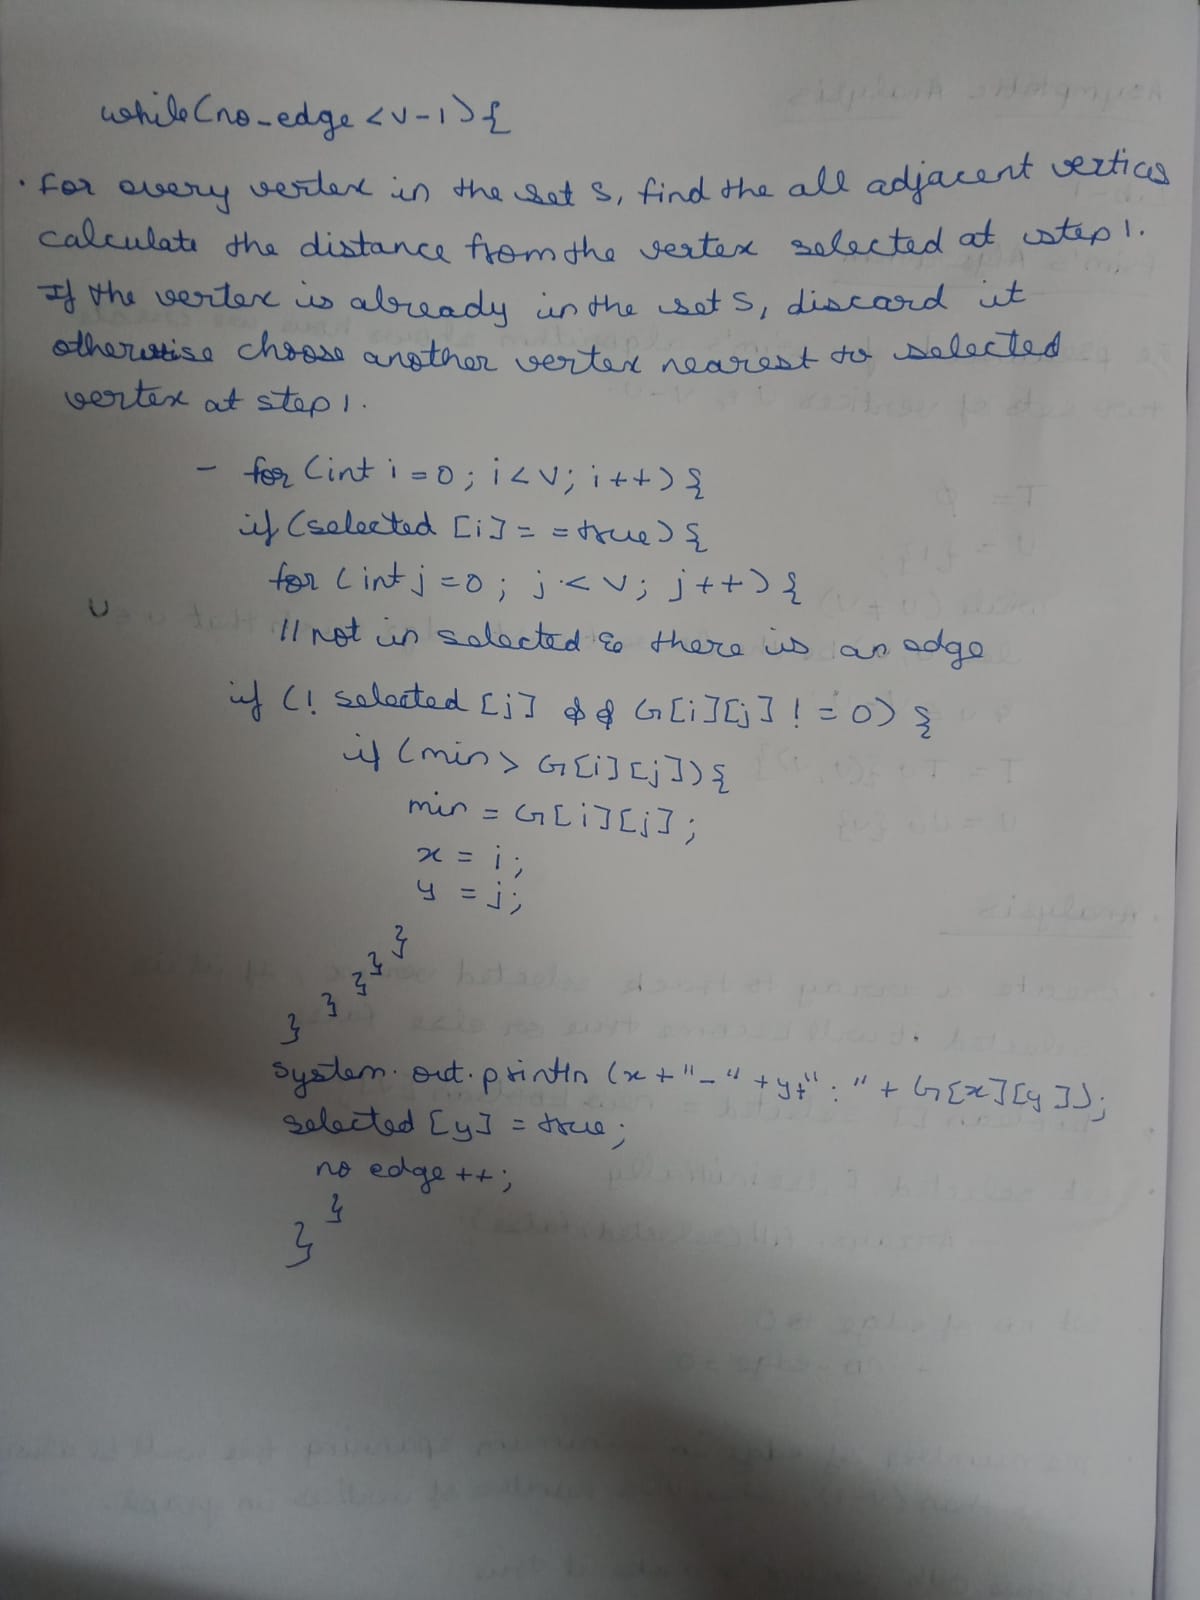 while(no_edge <V-1){
• For every vertex in the set S, find the all adjacent vertices
calculate the distance from the vertex selected at step 1.
If the vertex is already in the set S, discard it
otherwise choose another vertex nearest to selected
vertex at step 1.
- for (int i=0; i<V; i++){
if (selected [i]= =true){
for (int j=0; j<V; j++){
U
// not in selected & there is an edge
if (! selected [j] && G[i][j] != 0) {
if (min > G[i][j]){
min = G[i][j];
x = i;
y = j;
}
}
}
}
}
System.out.println (x+"-"+y+":"+ G[x][y]);
selected [y] = true;
no edge ++;
}
}